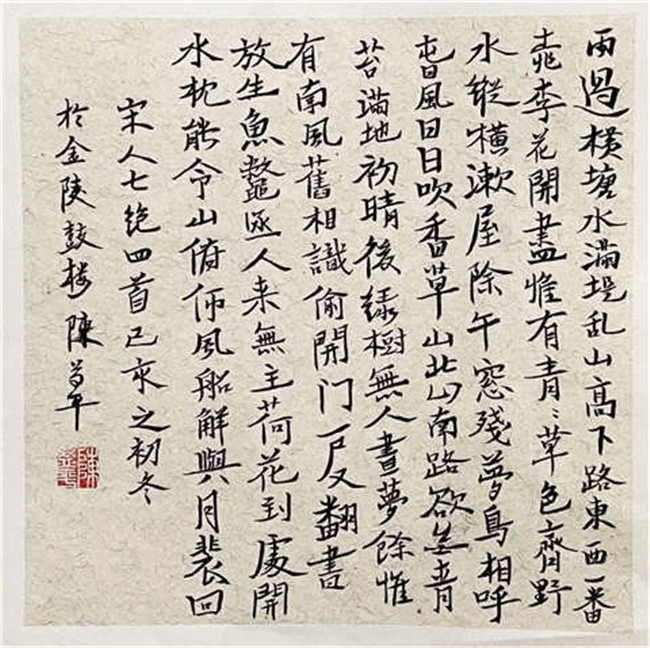 雨過橫塘水滿堤乱山高下路東西一番
桃李花開盡惟有青〻草色齊野
水縱橫漱屋除午窓殘夢鳥相呼
春風日日吹香草山北山南路欲無青
苔滿地初晴後緑樹無人晝夢餘惟
有南風舊相識偷開门戶又翻書
放生魚鱉逐人来無主荷花到處開
水枕能令山俯仰風船解與月裴回
宋人七绝四首己亥之初冬
於金陵鼓樓陳平